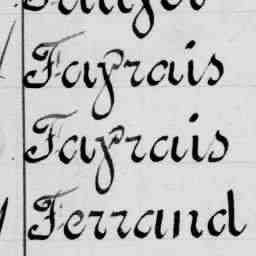 Fayrais
Fayrais
Ferrand